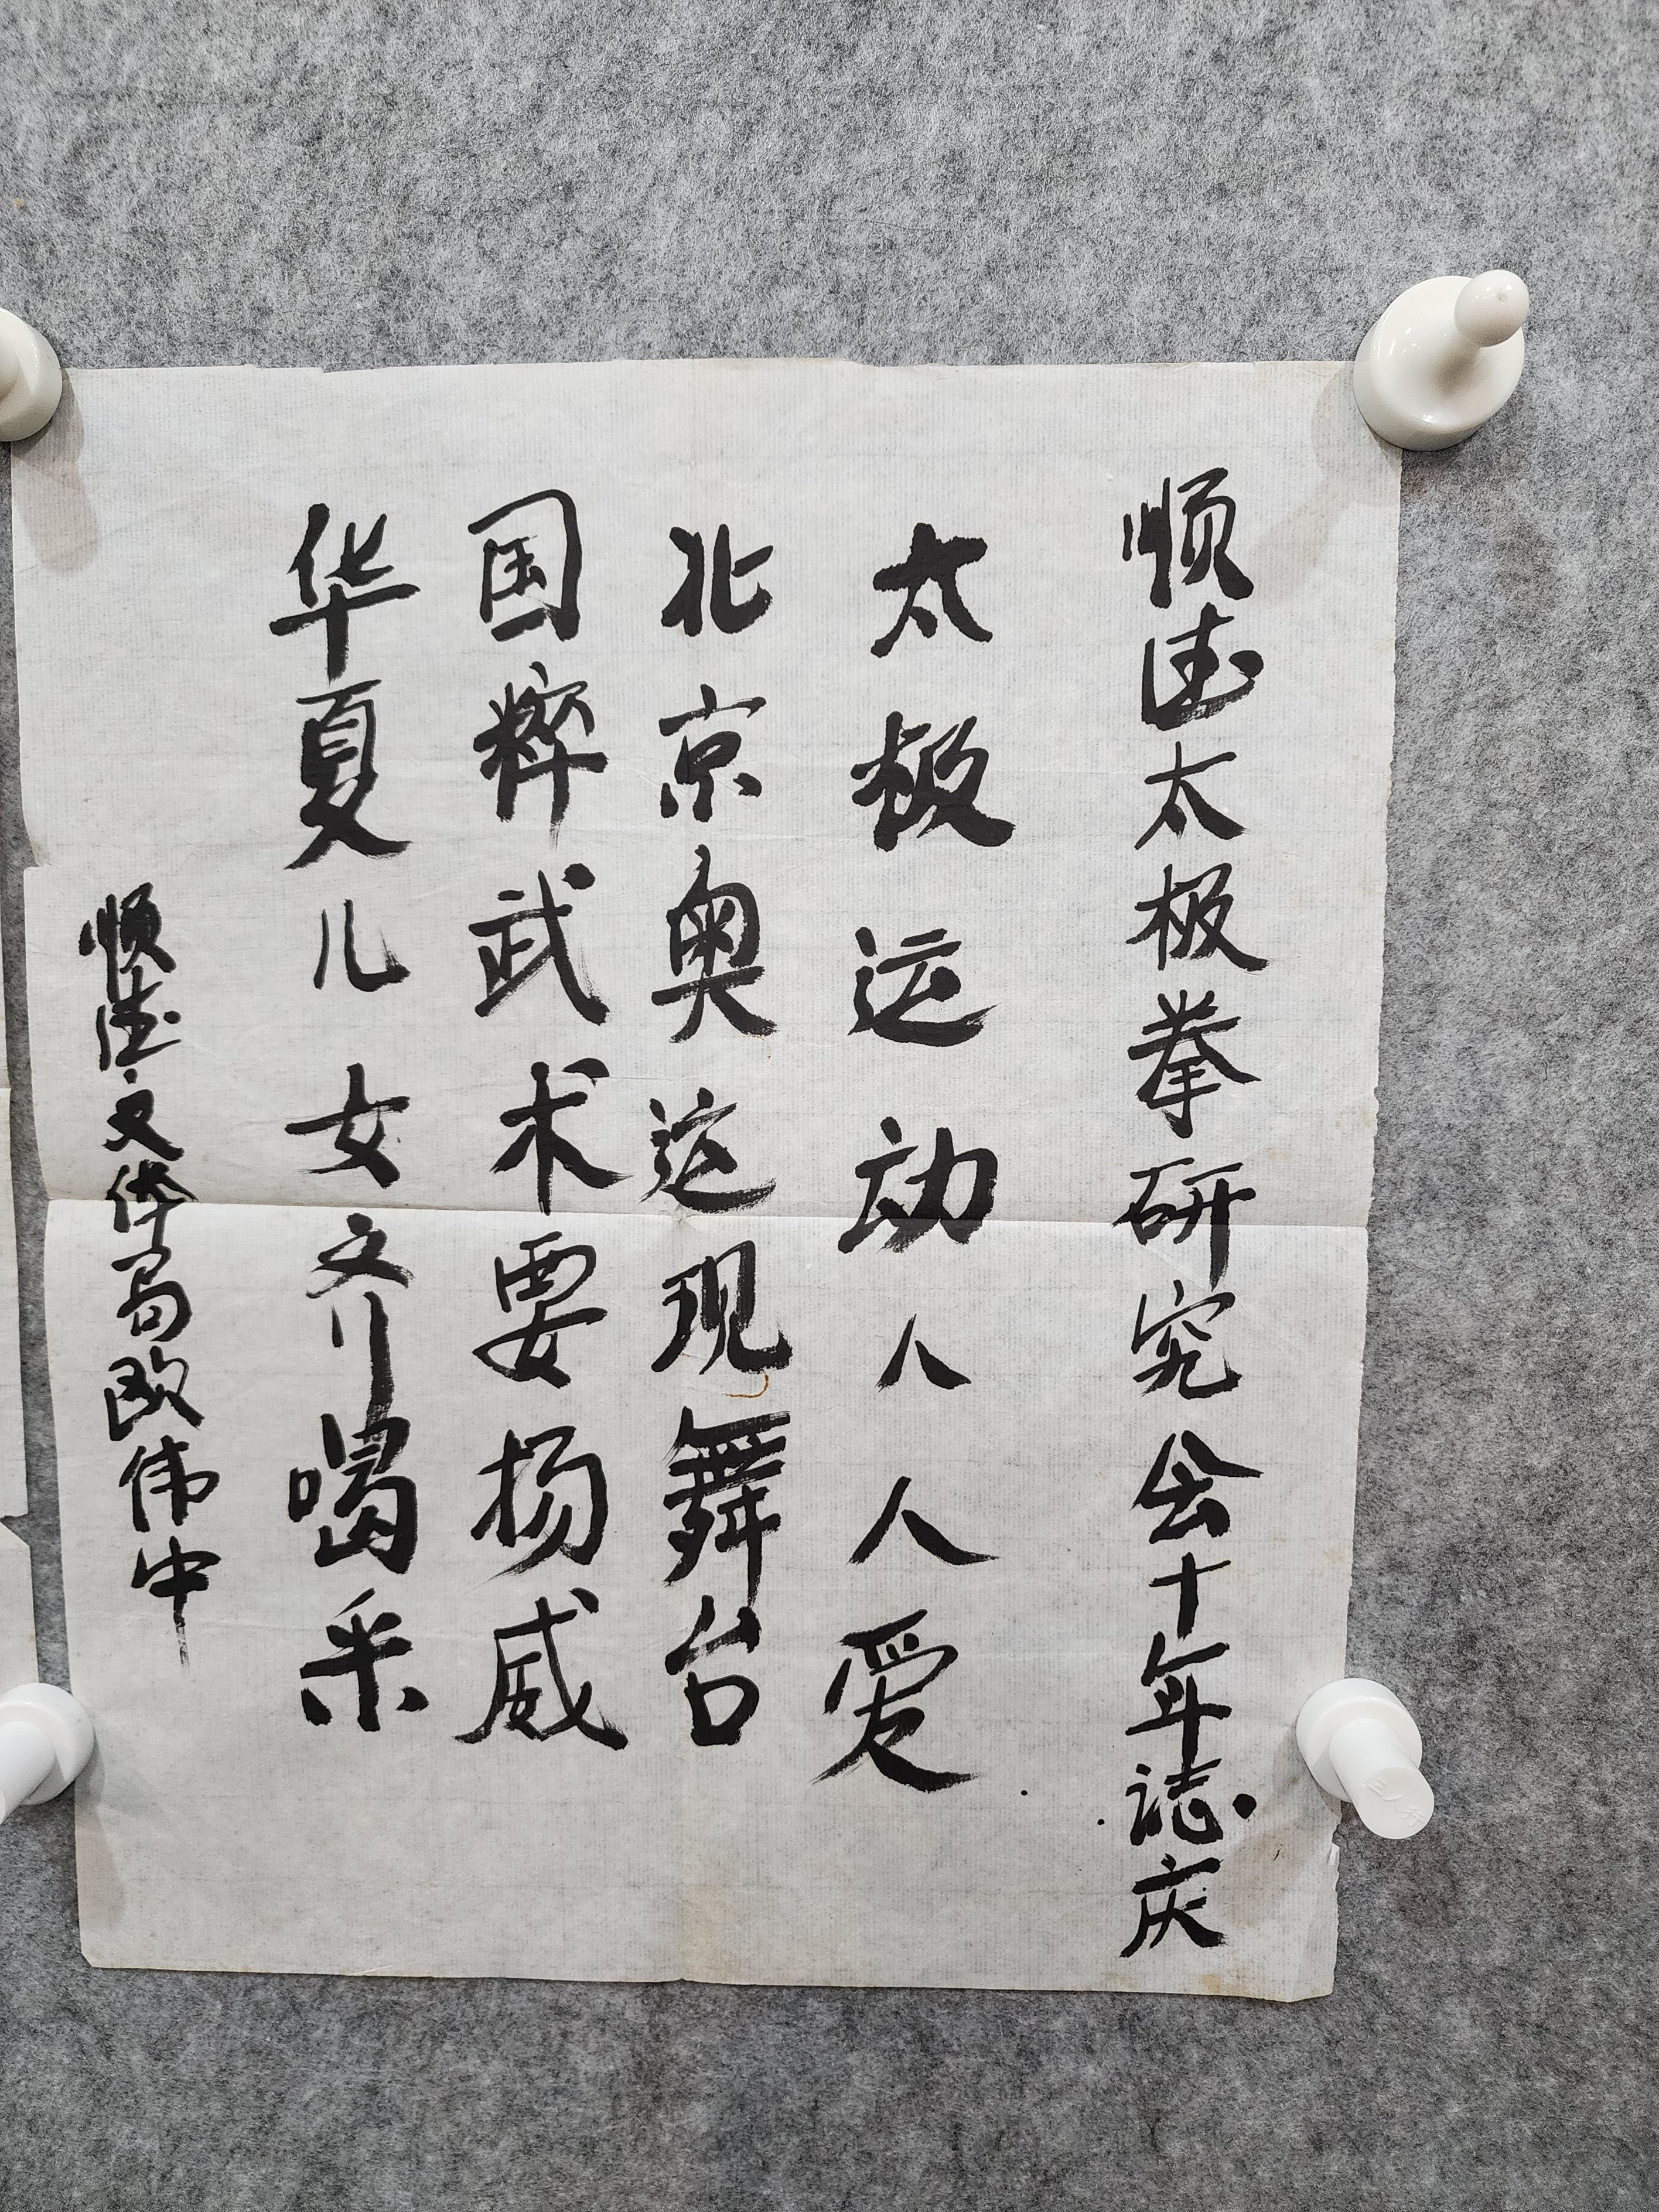 顺德太极拳研究会十年誌庆
太极运动人人爱
北京奥运现舞台
国粹武术要扬威
华夏儿女齐喝采
顺德文体局欧伟中